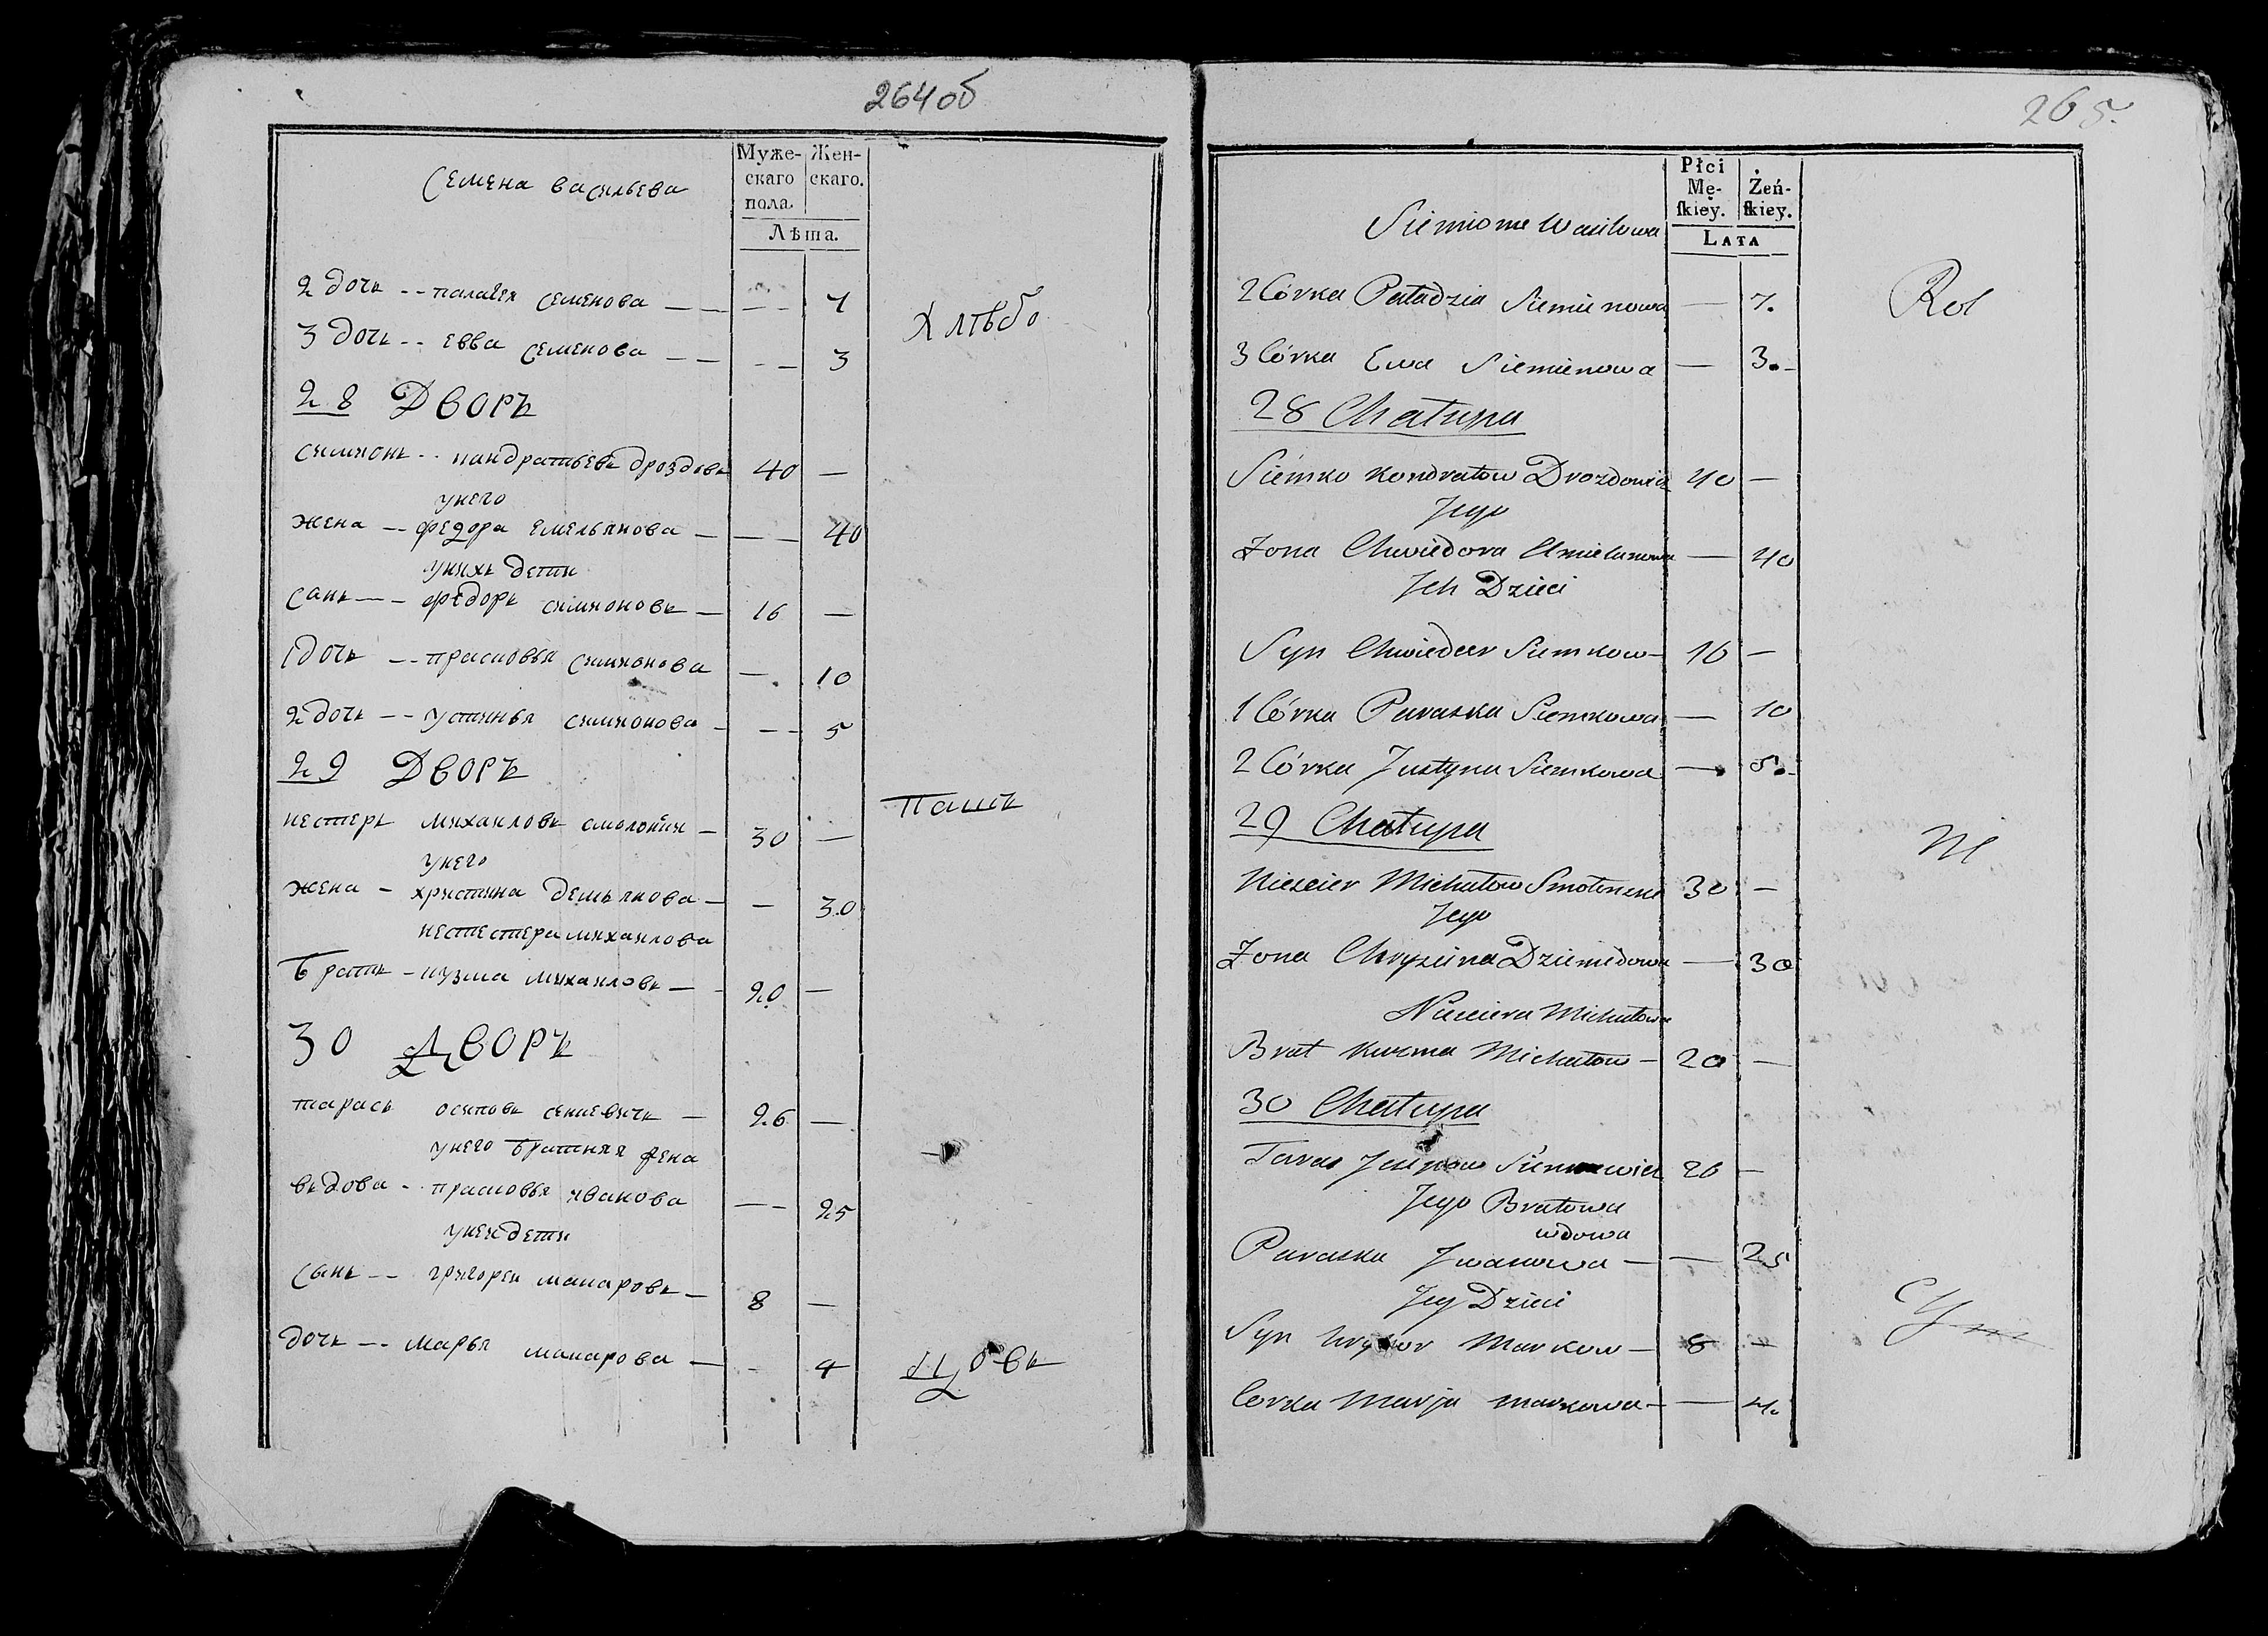 264 об
Муже- Жен-
скаго скаго.
пола.
Лѣта.
Семена васильева
2 дочь -- палагея семенова — — 7
3 дочь -- евва семенова — — 3
Хлѣбо
28 Дворъ
симионъ -- кандратьевъ дроздовъ 40 —
унего
жена -- федора емельянова — — 40
унихъ дети
санъ -- федоръ симионовъ — 16 —
1 дочь -- прасковья симионова — 10
2 дочь -- устинья симионова — 5
29 Дворъ
пашъ
нестеръ михаиловъ — 30 —
унего
жена — христина демьянова — — 30
нестестера михаилова
братъ — кузма михаиловъ — 20 —
30 Дворъ
тарасъ осиповъ сенкевичъ — 26 —
унего братняя жена
вьдова - прасковья ивакова — 25
унея дети
сынъ -- григореи макаровъ — 8 —
дочь -- марья макарова — 4
цовъ
265.
Płci
Mę- Żeń-
skiey. skiey.
LATA
Siemiona Wasilowa
2 Córka Paładzia Siemienowa — 7.
Rol
3 Córka Ewa Siemienowa — 3.
28 Chałupa
Siemko Kondratow Drozdowicz 40 —
Jego
Żona Chwiedora Emielanowa — 40
Jch Dzieci
Syn Chwieder Siemkow — 16 —
1 Córka Paraska Siemkowa — 10
2 Córka Justyna Siemkowa — 5.
29 Chałupa
ni
Niescier Michałow 30 —
Jego
Żona Chryscina Dziemidowa — 30
Niesciera Michałowa
Brat Kuzma Michałow — 20 —
30 Chałupa
Taras Jesipow 26 —
Jego Bratowa
wdowa
Paraska Jwanowa — — 25
Jey Dzieci
Syn Hryhor Markow — 8 —
Corka Marja Markowa — — 4.